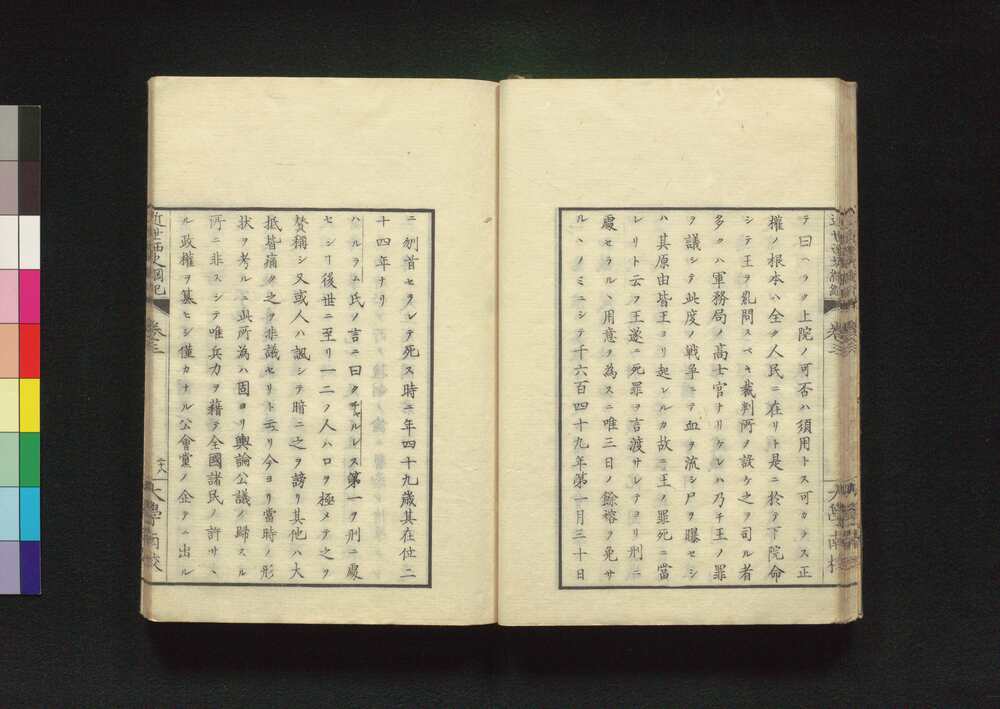 テ曰ヘラク上院ノ可否ハ須用トス可カラス正
權ノ根本ハ全ク人民ニ在リト是ニ於テ下院命
シテ王ヲ乱問スベキ裁判所ノ設ケ之ヲ司ル者
多クハ軍務局ノ高士官ナリケレハ乃チ王ノ罪
ヲ議シテ此度ノ戦爭ニテ血ヲ流シ尸ヲ曝セシ
ハ其原由皆王ヨリ起レルカ故ニ王ノ罪死ニ當
レリト云フ王遂ニ死罪ヲ言渡サレテヨリ刑ニ
處セラルヽ用意ヲ為スニ唯三日ノ餘裕ヲ免サ
ルヽノミニシテ千六百四十九年第一月三十日
ニ刎首セラレテ死ス時ニ年四十九歳其在位二
十四年ナリ
ハルラム氏ノ言ニ曰クチャルレス第一ヲ刑ニ處
セシヿ後世ニ至リ一二ノ人ハ口ヲ極メテ之ヲ
賛稱シ又或人ハ諷シテ暗ニ之ヲ謗リ其他ハ大
抵皆痛ク之ヲ非議セリト云リ今ヨリ當時ノ形
状ヲ考ルニ此所為ハ固ヨリ輿論公議ノ歸スル
所ニ非スシテ唯兵力ヲ藉テ全國諸民ノ許サヽ
ル政權ヲ簒セシ僅カナル公會黨ノ企テニ出ル
近世西史國紀
卷三
大學南校